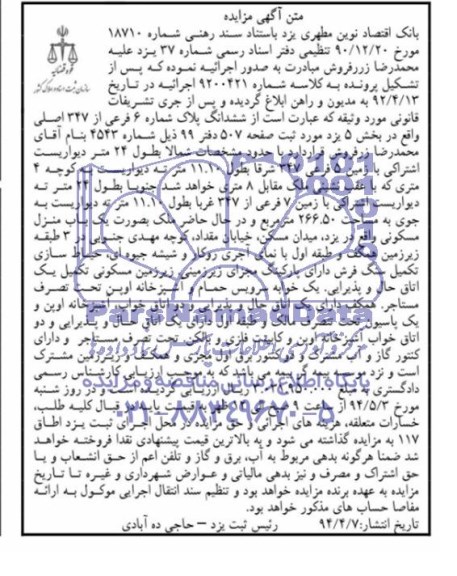 متن آگهی مزایده
بانک اقتصاد نوین مطهری یزد باستناد سند رهنی شماره ۱۸۷۱۰
مورخ ۹۰/۱۲/۲۰ تنظیمی دفتر اسناد رسمی شماره ۳۷ یزد علیه
محمدرضا زرفروش مبادرت به صدور اجرائیه نموده که پس از
تشکیل پرونده به کلاسه شماره ۹۲۰۰۴۲۱ اجرائیه در تاریخ
۹۲/۴/۱۳ به مدیون و راهن ابلاغ گردیده و پس از جری تشریفات
قانونی مورد وثیقه که عبارت است از ششدانگ پلاک شماره ۶ فرعی از ۳۴۷ اصلی
واقع در بخش ۵ یزد مورد ثبت صفحه ۵۰۷ دفتر ۹۹ ذیل شماره ۴۵۴۳ بنام آقای
محمدرضا زرفروش قراردارد با حدود مشخصات شمالا بطول ۲۴ متر دیواریست
اشتراکی با زمین ۵ فرعی ۳۴۷ شرقا بطول ۱۱.۱۰ متر ته دیواریست به کوچه ۴
متری که با عقب نشینی ملک مقابل ۸ متری خواهد شد جنوبا بطول ۲۴ متر ته
دیواریست اشتراکی با زمین ۷ فرعی از ۳۴۷ غربا بطول ۱۱.۱۰ متر ته دیواریست به
جوی به مساحت ۲۶۶.۵۰ مترمربع و در حال حاضر ملک بصورت یک باب منزل
مسکونی واقع در یزد، میدان مسکن، خیابان مقداد، کوچه مهدی جنوبی در ۳ طبقه
زیرزمین همکف و طبقه اول با نمای آجری روکار و شیشه جیوه ای، حیاط سازی
تکمیل سنگ فرش دارای پارکینگ مجزای زیرزمینی زیرزمین مسکونی تکمیل یک
اتاق حال و پذیرایی. یک خوابه سرویس حمام و آشپزخانه اوپن تحت تصرف
مستاجر. همکف دارای یک اتاق حال و پذیرایی و دو اتاق خواب، آشپزخانه اوپن و
یک پاسیون تحت تصرف مالک و طبقه اول دارای یک اتاق حال و پذیرایی و دو
اتاق خواب آشپزخانه اوپن و کابینت فلزی و بالکن تحت تصرف مستاجر و دارای
کنتور گاز و آب مشترک و کنتور برق همکف و زیرزمین مشترک
است و نزد موسسه بیمه گر بیمه می باشد که به موجب ارزیابی کارشناس رسمی
دادگستری به مبلغ ریال ارزیابی گردیده است و در روز شنبه
مورخ ۹۴/۵/۳ از ساعت ۹ در قبال کلیه طلب،
خسارات متعلقه، هزینه های اجرائی و حق مزایده در محل اجرای ثبت یزد اطاق
۱۱۷ به مزایده گذاشته می شود و به بالاترین قیمت پیشنهادی نقدا فروخته خواهد
شد ضمنا هرگونه بدهی مربوط به آب، برق و گاز و تلفن اعم از حق انشعاب و یا
حق اشتراک و مصرف و نیز بدهی مالیاتی و عوارض شهرداری و غیره تا تاریخ
مزایده به عهده برنده مزایده خواهد بود و تنظیم سند انتقال اجرایی موکول به ارائه
مفاصا حساب های مذکور خواهد بود.
تاریخ انتشار: ۹۴/۴/۷ رئیس ثبت یزد – حاجی ده آبادی
ParsNamadData
پایگاه اطلاع رسانی مناقصه و مزایده
۰۲۱-۸۸۳۴۹۶۷۰-۵